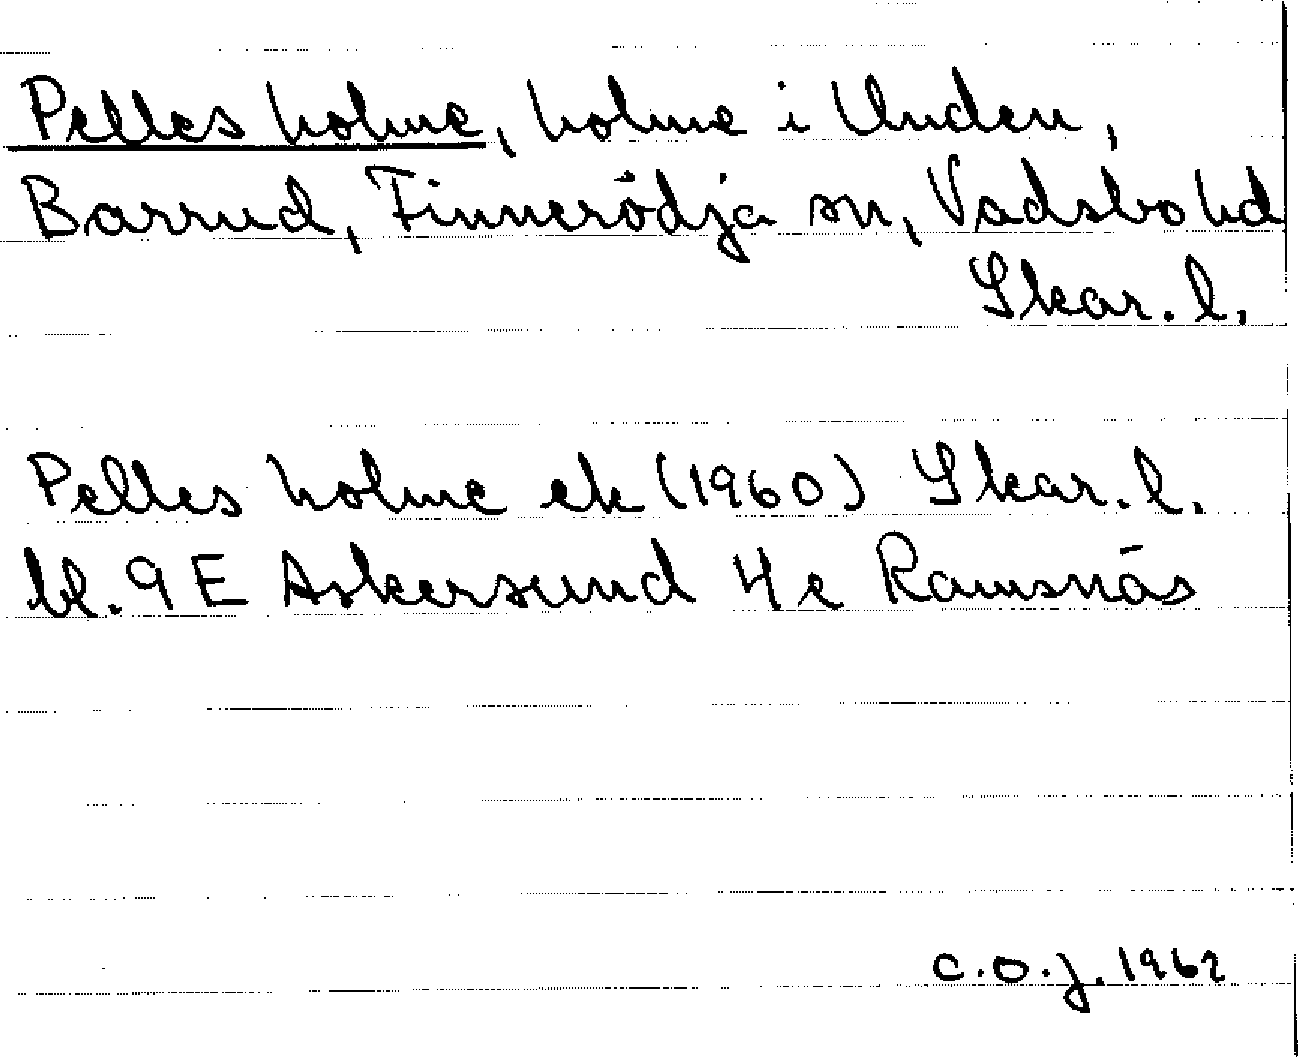 Pelles holme, holme i Unden,
Barrud, Finnerödja sn, Vadsbo hd
Skar. l.
Pelles holme ek (1960) Skar. l.
bl. 9 E Askersund 4 e Ramsnäs
C.O.J. 1962